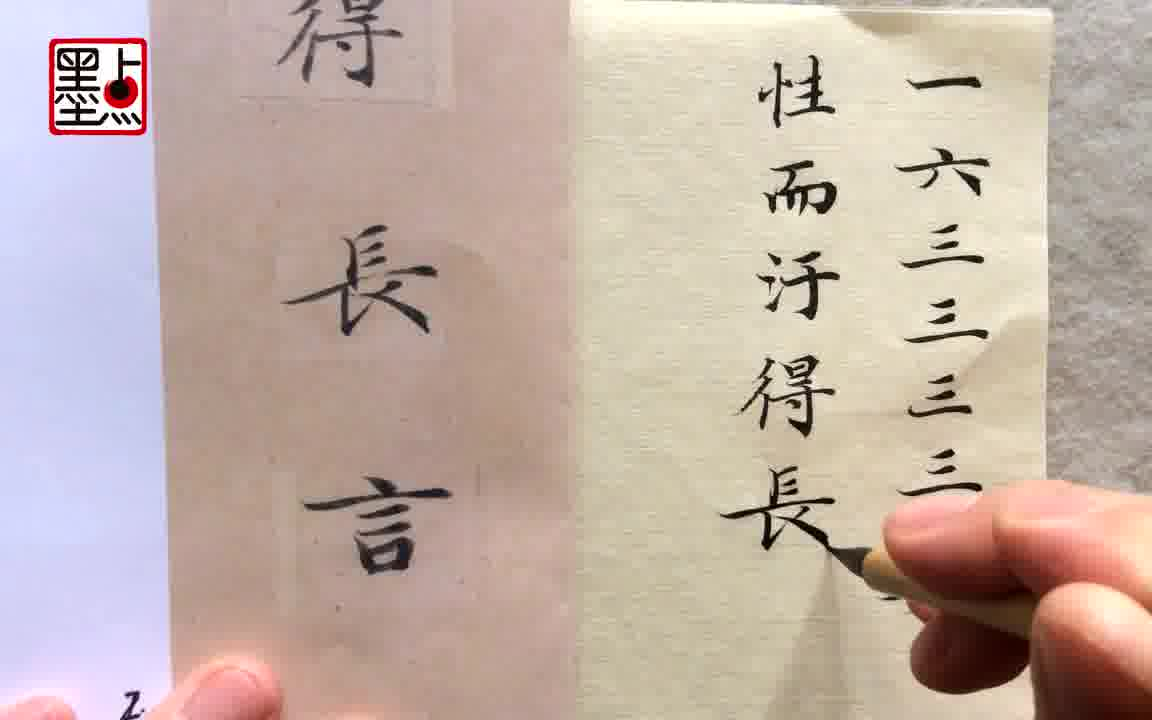 墨点
得長言
一六三三三三
性而汙得長